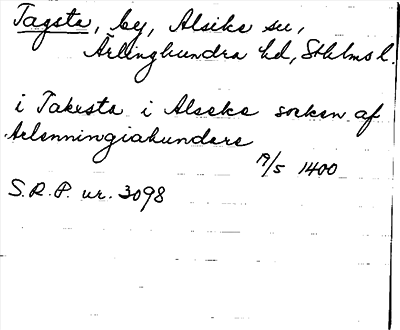 Tagsta, by, Alsike sn,
Ärlinghundra hd, Sthlms l.
i Takesta i Alseke sorken af
Arlenningiahundare
19/5 1400
S.R.P. nr. 3098